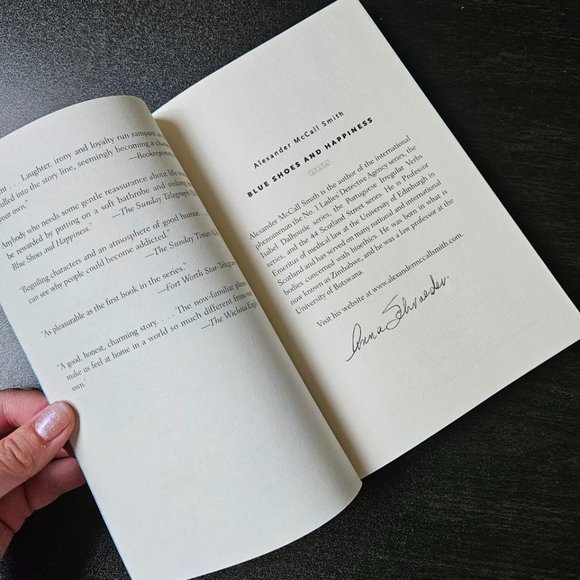 . . Laughter, irony and loyalty run rampant
into the story line, seemingly becoming a
your own."
—Bookreporter
Anybody who needs some gentle reassurance about life
be rewarded by putting on a soft bathrobe and sinking
Blue Shoes and Happiness."
—The Sunday Telegraph
"Beguiling characters and an atmosphere of good humor.
can see why people could become addicted."
—The Sunday Times
"As pleasurable as the first book in the series."
—Fort Worth Star-Telegram
"A good, honest, charming story. . . . The now-familiar
make us feel at home in a world so much different from
own."
—The Wichita
Alexander McCall Smith
BLUE SHOES AND HAPPINESS
Alexander McCall Smith is the author of the international
phenomenon the No. 1 Ladies' Detective Agency series, the
Isabel Dalhousie Series, the Portuguese Irregular Verbs
series, and the 44 Scotland Street series. He is Professor
Emeritus of medical law at the University of Edinburgh in
Scotland and has served on many national and international
bodies concerned with bioethics. He was born in what is
now known as Zimbabwe, and he was a law professor at the
University of Botswana.
Visit his website at www.alexandermccallsmith.com.
Anna Schroeder.